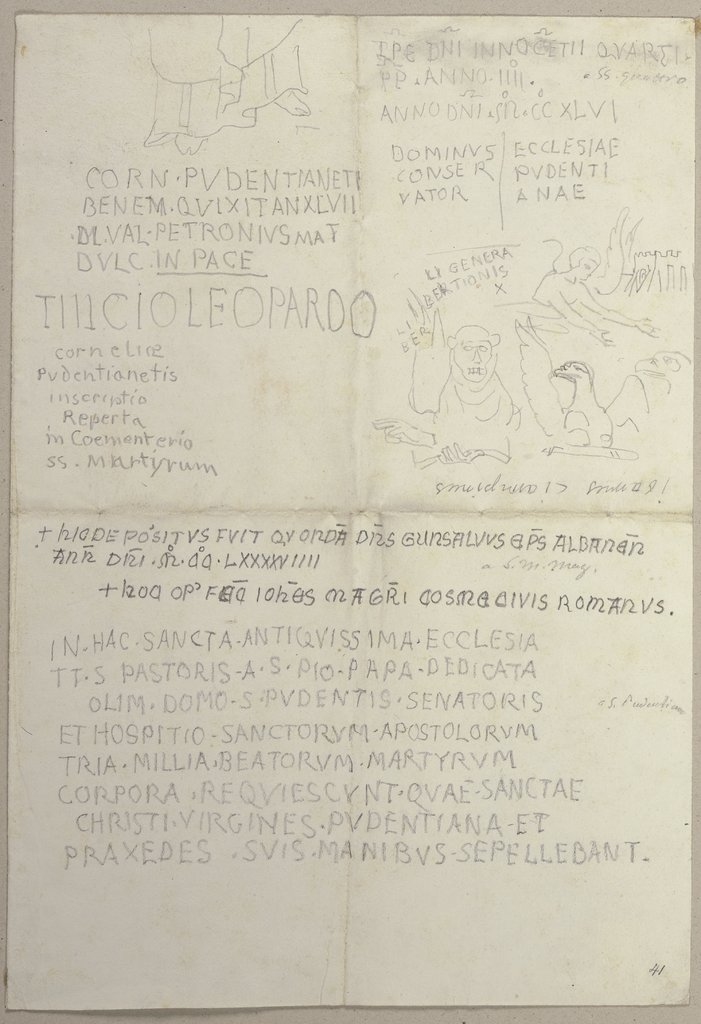 TPE DNI INNOCETII QVARTI
PP. ANNO. IIII.
a SS. quattro
ANNO DNI. M. CC XLVI
DOMINVS ECCLESIAE
CONSER PVDENTI
VATOR ANAE
CORN. PVDENTIANETI
BENEM. QVIXIT AN XLVII
D. VAL. PETRONIVS MAT
DVLC. IN PACE
LI GENERA
BERTIONIS
X
LI
BER
TIIICIO LEOPARDO
corneliæ
Pvdentianetis
inscriptio
Reperta
in Coementerio
ss. Martyrum
+ HIC DEPOSITVS FVIT QVONDA DNS GUNSALVUS EPS ALBANEN
ANN DNI. M. CC. LXXXXVIIII
a S. M. Mag.
+ HOC OP' FEC IOHES MAGRI COSME CIVIS ROMANVS.
IN. HAC. SANCTA. ANTIQVISSIMA. ECCLESIA
TT. S PASTORIS. A. S. PIO. PAPA. DEDICATA
OLIM. DOMO. S. PVDENTIS. SENATORIS
a S. Pudentiana
ET HOSPITIO. SANCTORVM. APOSTOLORVM
TRIA. MILLIA. BEATORVM. MARTYRVM
CORPORA. REQVIESCVNT. QVAE. SANCTAE
CHRISTI. VIRGINES. PVDENTIANA. ET
PRAXEDES. SVIS. MANIBVS. SEPELLEBANT.
41